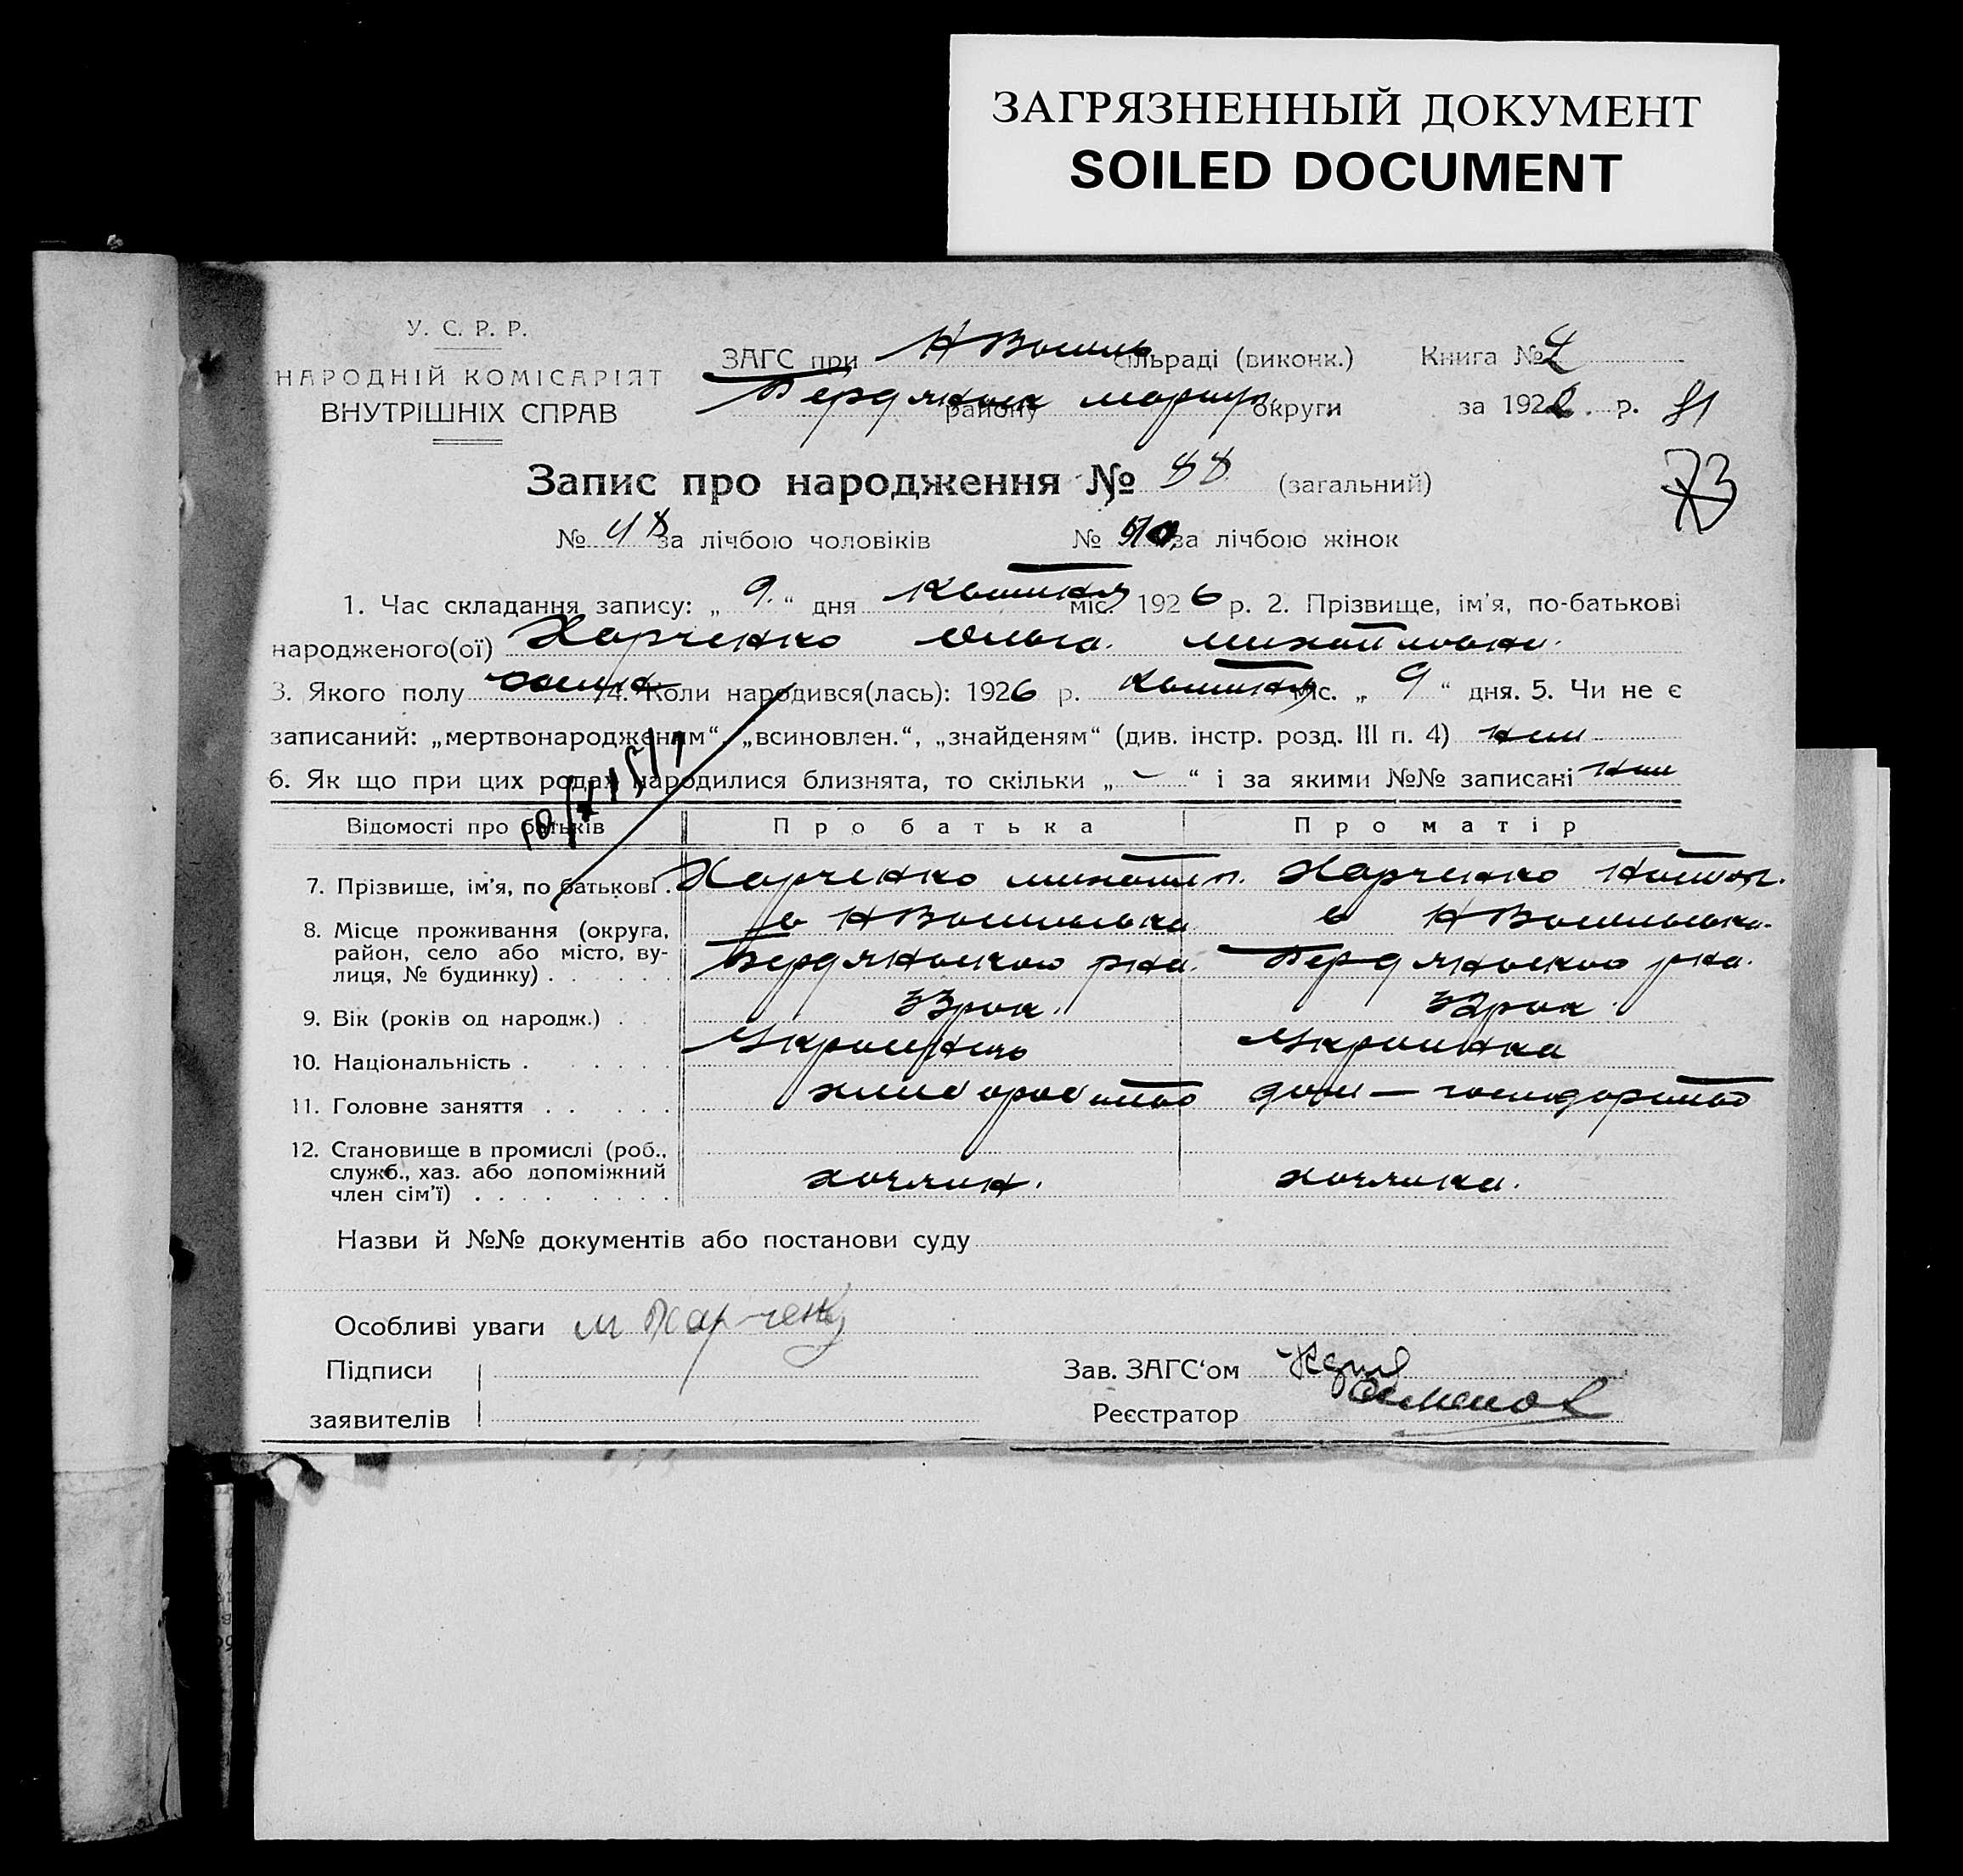 ЗАГРЯЗНЕННЫЙ ДОКУМЕНТ
SOILED DOCUMENT
У. С. Р. Р.
НАРОДНІЙ КОМІСАРІЯТ
ВНУТРІШНІХ СПРАВ
ЗАГС при сільраді (виконк.) Книга №
району округи за 192 р. 81
73
Запис про народження № 88 (загальний)
№ 48 за лічбою чоловіків № за лічбою жінок
1. Час складання запису: „ 9. “ дня Квітня міс. 1926 р. 2. Прізвище, ім’я, по-батькові
народженого(ої) Харченко Ольга Михайловна.
3. Якого полу 4. Коли народився(лась): 1926 р. Квітня міс. „ 9 “ дня. 5. Чи не є
записаний: „мертвонародженям“, „всиновлен.“, „знайденям“ (див. інстр. розд. III п. 4)
6. Як що при цих родах народилися близнята, то скільки „ - “ і за якими №№ записані
Відомості про батьків Про батька Про матір
7. Прізвище, ім’я, по батькові . Харченко Харченко
8. Місце проживання (округа,
район, село або місто, ву-
лиця, № будинку) . . . . Бердянського рна. Бердянського рна.
9. Вік (років од народж.) . . 33 рок. 32 рок.
10. Національність . . . . . Українець Українка
11. Головне заняття . . . . . хлиборобство дом — господарство
12. Становище в промислі (роб.,
служб., хаз. або допоміжний
член сім’ї) . . . . . . . . хозяин. хозяика.
Назви й №№ документів або постанови суду
Особливі уваги М Харченко
Підписи
заявителів
Зав. ЗАГС‘ом
Реєстратор